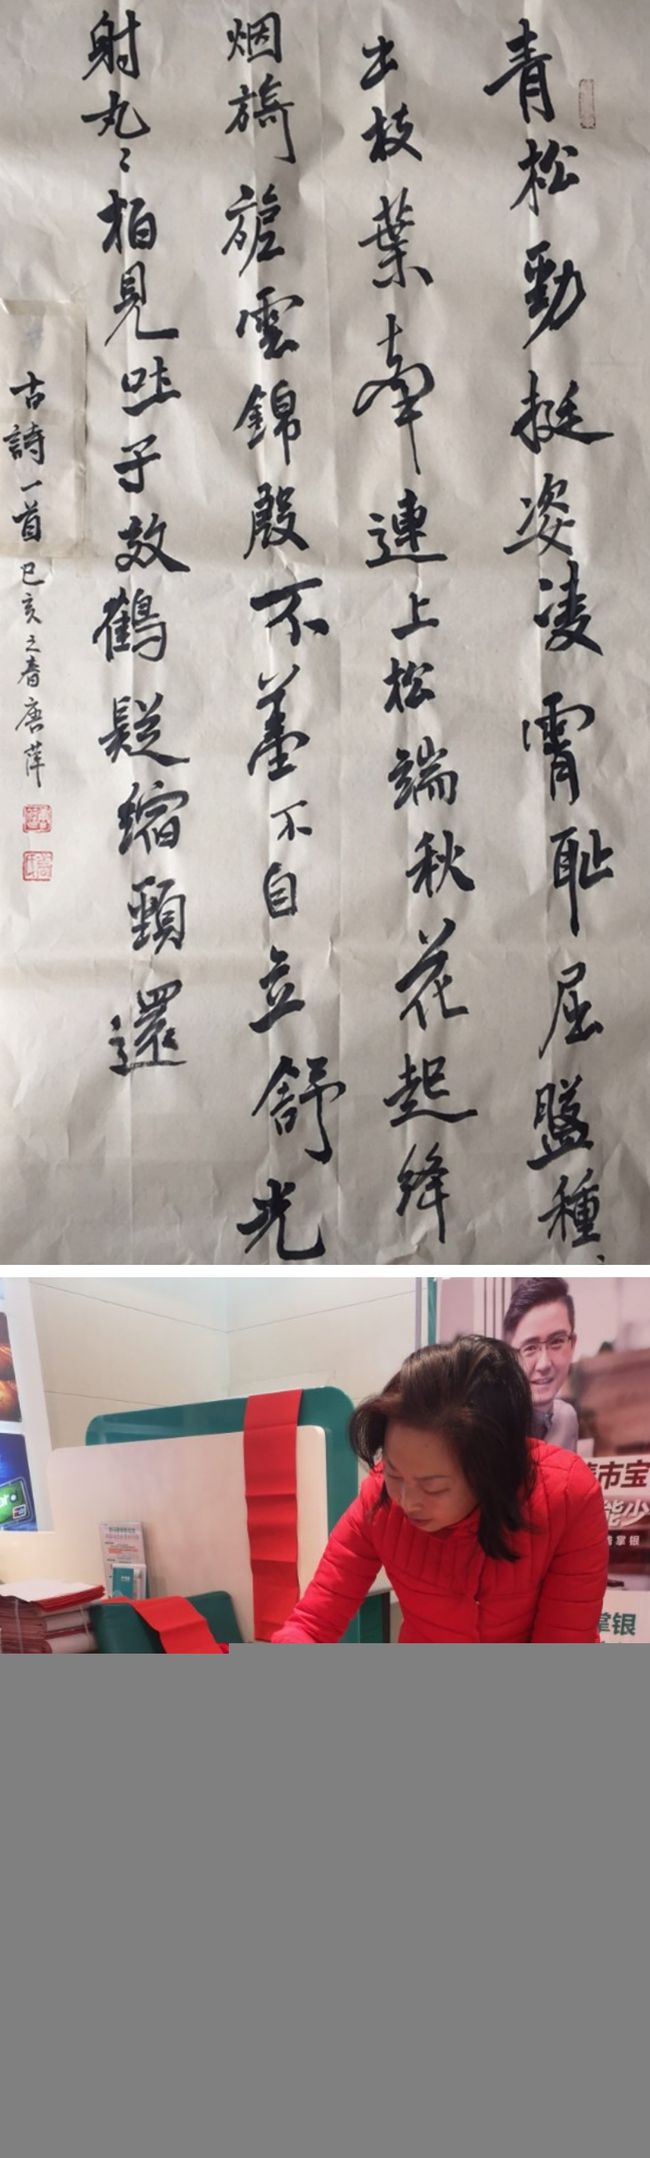 青松勁挺姿凌霄耻屈盤種〻
出枝葉牽連上松端秋花起絳
烟旖旎雲錦殷不羞不自立舒光
射丸〻柏見吐子效鶴疑縮頸還
古詩一首 己亥之春唐萍
市宝
能少
掌银
掌银